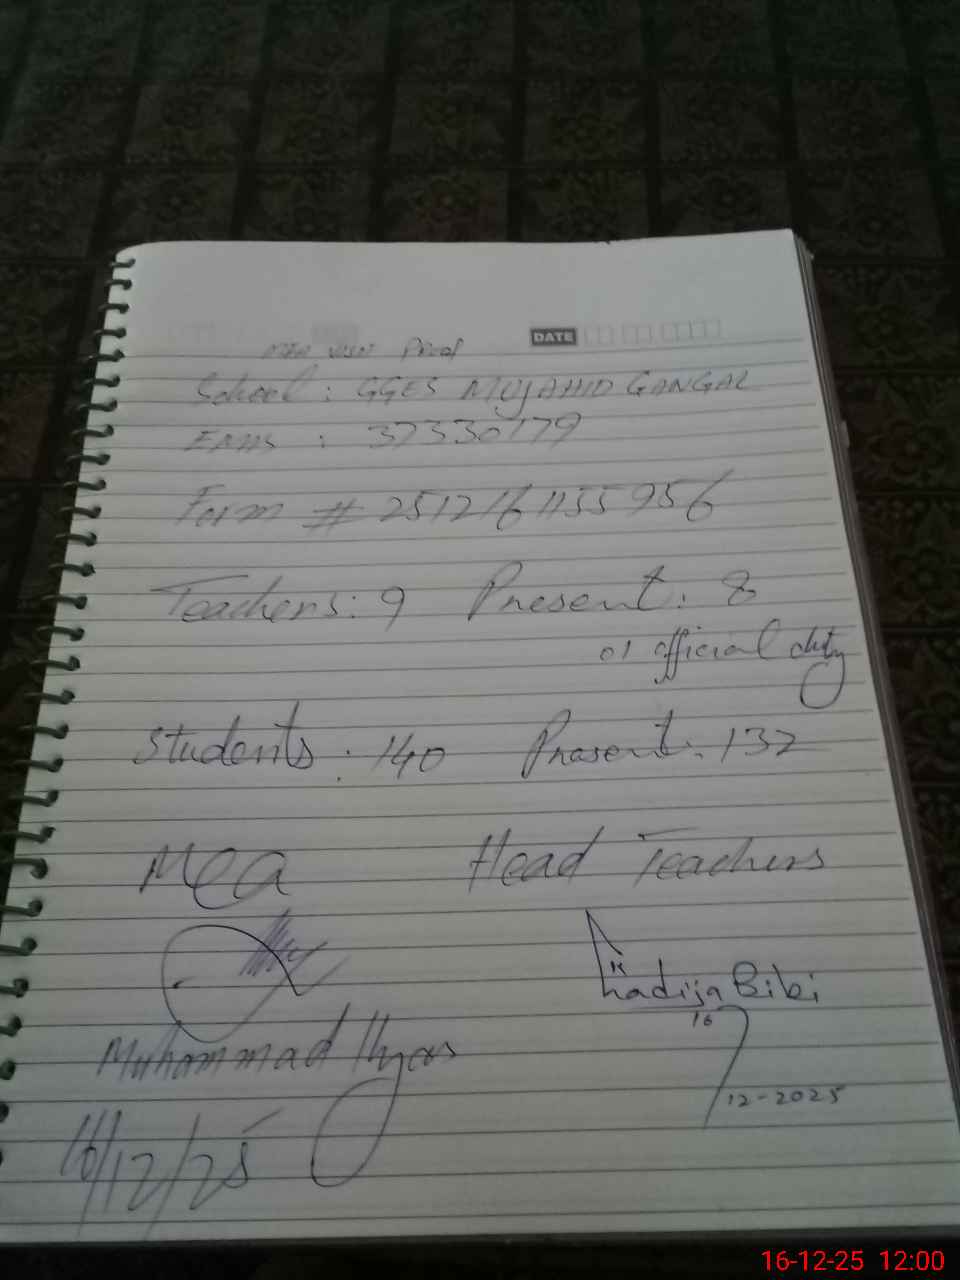 MEA Visit Proof
DATE
School : GGES MUJAHID GANGAL
EMIS : 37330179
Form # 2512161155956
Teachers: 9 Present: 8
01 official duty
Students : 140 Present: 132
Mea Head Teachers
Khadija Bibi
16
12-2025
Muhammad Ilyas
16/12/25
16-12-25 12:00